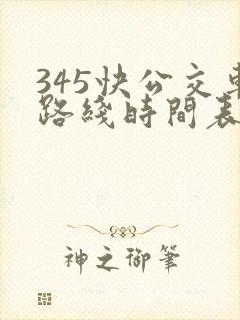 345快公交車
路綫時間表
神之御筆